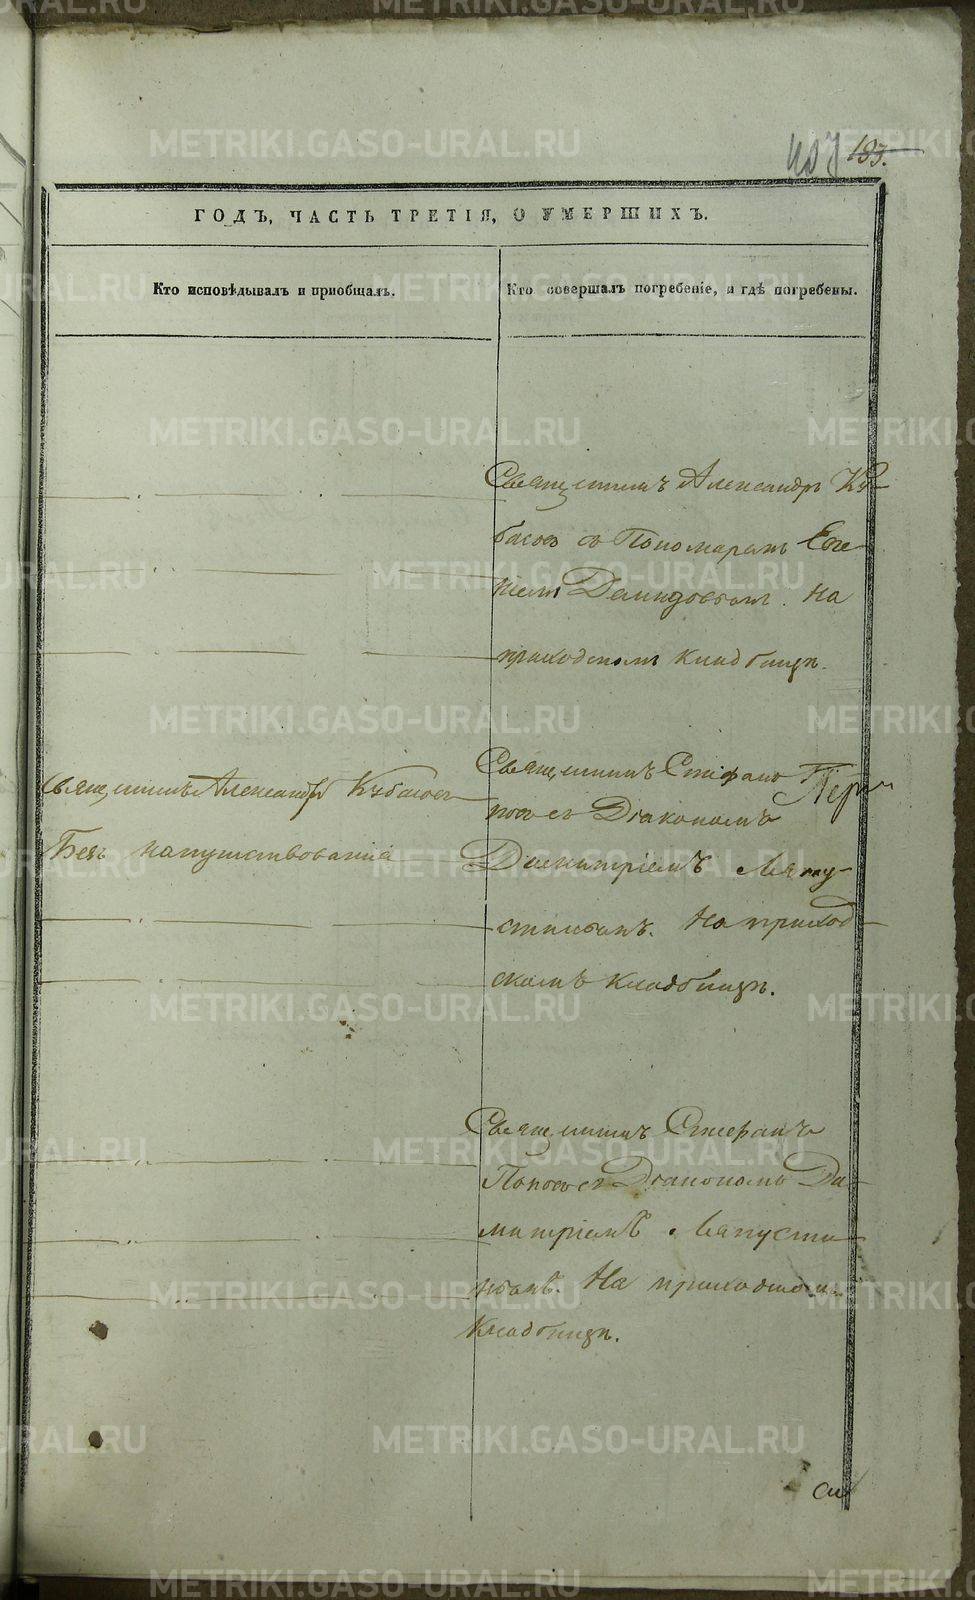 407 183.
ГОДЪ, ЧАСТЬ ТРЕТІЯ, О УМЕРШИХЪ.
Кто исповѣдывалъ и пріобщалъ.
Кто совершалъ погребеніе, и гдѣ погребены.
Священникъ Александръ Ку-
басовъ съ Пономаремъ Евге-
ніемъ Демидовымъ. На
приходскомъ кладбищѣ.
Священникъ Александръ Кубасовъ
Безъ напутствованія
Священникъ Стефанъ
съ Діакономъ
Димитріемъ Ляпу-
стинымъ. На приход-
скомъ кладбищѣ.
Священникъ Стефанъ
Поповъ съ Діакономъ Ди-
митріемъ Ляпусти-
нымъ. На приходском
Кладбищѣ.
METRIKI.GASO-URAL.RU